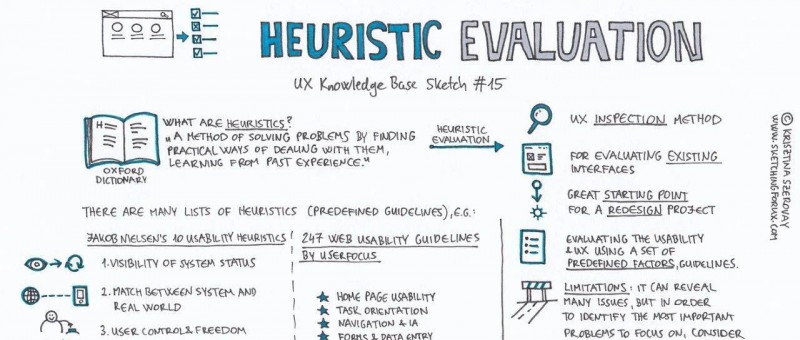 HEURISTIC EVALUATION
UX Knowledge Base Sketch #15
WHAT ARE HEURISTICS?
"A METHOD OF SOLVING PROBLEMS BY FINDING
PRACTICAL WAYS OF DEALING WITH THEM,
LEARNING FROM PAST EXPERIENCE."
H=
OXFORD
DICTIONARY
HEURISTIC
EVALUATION
UX INSPECTION METHOD
FOR EVALUATING EXISTING
INTERFACES
GREAT STARTING POINT
FOR A REDESIGN PROJECT
EVALUATING THE USABILITY
& UX USING A SET OF
PREDEFINED FACTORS, GUIDELINES.
LIMITATIONS: IT CAN REVEAL
MANY ISSUES, BUT IN ORDER
TO IDENTIFY THE MOST IMPORTANT
PROBLEMS TO FOCUS ON, CONSIDER
THERE ARE MANY LISTS OF HEURISTICS (PREDEFINED GUIDELINES), E.G.:
JAKOB NIELSEN'S 10 USABILITY HEURISTICS
1. VISIBILITY OF SYSTEM STATUS
2. MATCH BETWEEN SYSTEM AND
REAL WORLD
3. USER CONTROL & FREEDOM
247 WEB USABILITY GUIDELINES
BY USERFOCUS
HOME PAGE USABILITY
TASK ORIENTATION
NAVIGATION & IA
FORMS & DATA ENTRY
© KRISZTINA SZEROVAY
WWW.SKETCHINGFORUX.COM